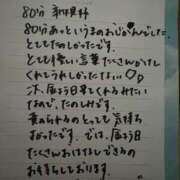 80分 新規様
80分あっというまのおじかんでした。
とてもたのしかったです。
とても優しい言葉たくさんかけて
くれてうれしかったな♡
次、届う日まてくれるみたい
なので、たのしみです。
責められるのとっても気持ち
よかったです。では、届う日
たくさんおはなしできるの
お待ちしております。